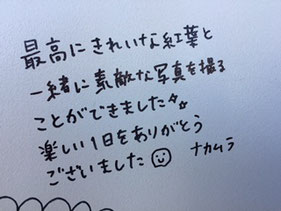 最高にきれいな紅葉と
一緒に素敵な写真を撮る
ことができました✨
楽しい1日をありがとう
ございました☺ ナカムラ